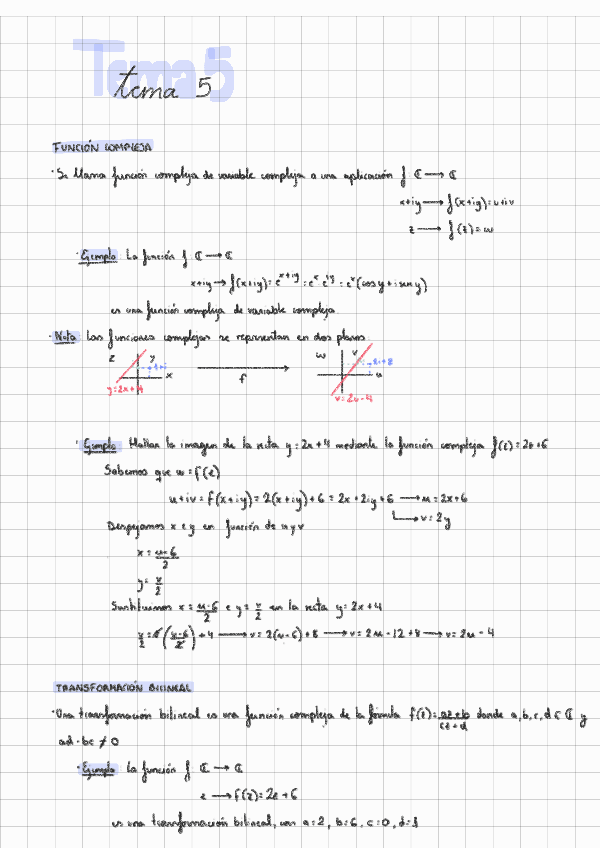 Tema 5
tema 5
FUNCIÓN COMPLEJA
· Se llama función compleja de variable compleja a una aplicación f: ℂ → ℂ
x+iy → f(x+iy)=u+iv
z → f(z)=w
· Ejemplo: La función f: ℂ → ℂ
x+iy → f(x+iy)= e^{x+iy} = e^x e^{iy} = e^x (cos y + i sen y)
es una función compleja de variable compleja.
· Nota: Las funciones complejas se representan en dos planos
z y x y=2x+4
f
w v u v=2u-4
· Ejemplo: Hallar la imagen de la recta y=2x+4 mediante la función compleja f(z)=2z+6
Sabemos que w=f(z)
u+iv = f(x+iy) = 2(x+iy)+6 = 2x+2iy+6 → u=2x+6
→ v=2y
Despejamos x e y en función de u y v
x = u-6/2
y = v/2
Sustituimos x = u-6/2 e y = v/2 en la recta y=2x+4
v/2 = 2(u-6/2)+4 → v=2(u-6)+8 → v=2u-12+8 → v=2u-4
TRANSFORMACIÓN BILINEAL
· Una transformación bilineal es una función compleja de la fórmula f(z)= az+b/cz+d donde a,b,c,d ∈ ℂ y
ad-bc ≠ 0
· Ejemplo: La función f: ℂ → ℂ
z → f(z)=2z+6
es una transformación bilineal, con a=2, b=6, c=0, d=1